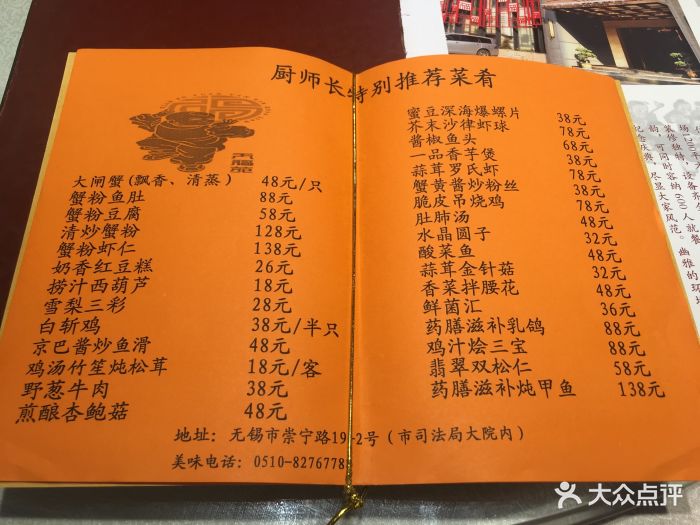 厨师长特别推荐菜肴
大闸蟹(飘香、清蒸) 48元/只
蟹粉鱼肚 88元
蟹粉豆腐 58元
清炒蟹粉 128元
蟹粉虾仁 138元
奶香红豆糕 26元
捞汁西葫芦 18元
雪梨三彩 28元
白斩鸡 38元/半只
京巴酱炒鱼滑 48元
鸡汤竹笙炖松茸 18元/客
野葱牛肉 38元
煎酿杏鲍菇 48元
蜜豆深海爆螺片 38元
芥末沙律虾球 78元
酱椒鱼头 68元
一品香芋煲 38元
蒜茸罗氏虾 78元
蟹黄酱炒粉丝 38元
脆皮吊烧鸡 78元
肚肺汤 48元
水晶圆子 32元
酸菜鱼 48元
蒜茸金针菇 32元
香菜拌腰花 48元
鲜菌汇 36元
药膳滋补乳鸽 88元
鸡汁烩三宝 88元
翡翠双松仁 58元
药膳滋补炖甲鱼 138元
地址: 无锡市崇宁路19-2号(市司法局大院内)
美味电话: 0510-8276778
大众点评